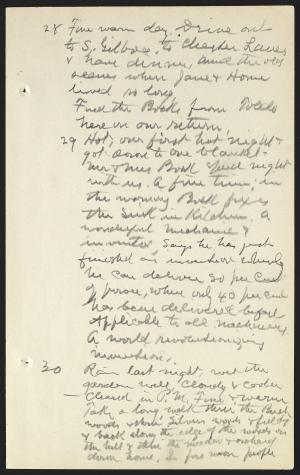 28 Fine warm day. Drive out
to S. Gilboa, to Chester Lanes
& have dinner, amid the old
scenes when Jane & Homer
lived so long.
Find the Bocks from Toledo
here on our return.
29 Hot, our first hot night &
got down to one blanket.
Mr & Mrs Bock spend night
with us. A fine time; in
the morning Bock fixes
the sink in Kitchen. A
wonderful mechanic &
inventor says he has just
finished an invention whereby
he can deliver 90 per cent
of power, where only 40 per cent
has been delivered before
Applicable to all machinery.
A world revolutionizing
invention.
30 Rain last night, wet the
garden well, Cloudy & cooler
— Cleared in P.M. Fine & warm
Take a long walk thru the Beech
woods & thru woods & fields
& back along the edge of the woods on
the hill & thru the meadow & orchard
down home. So few people